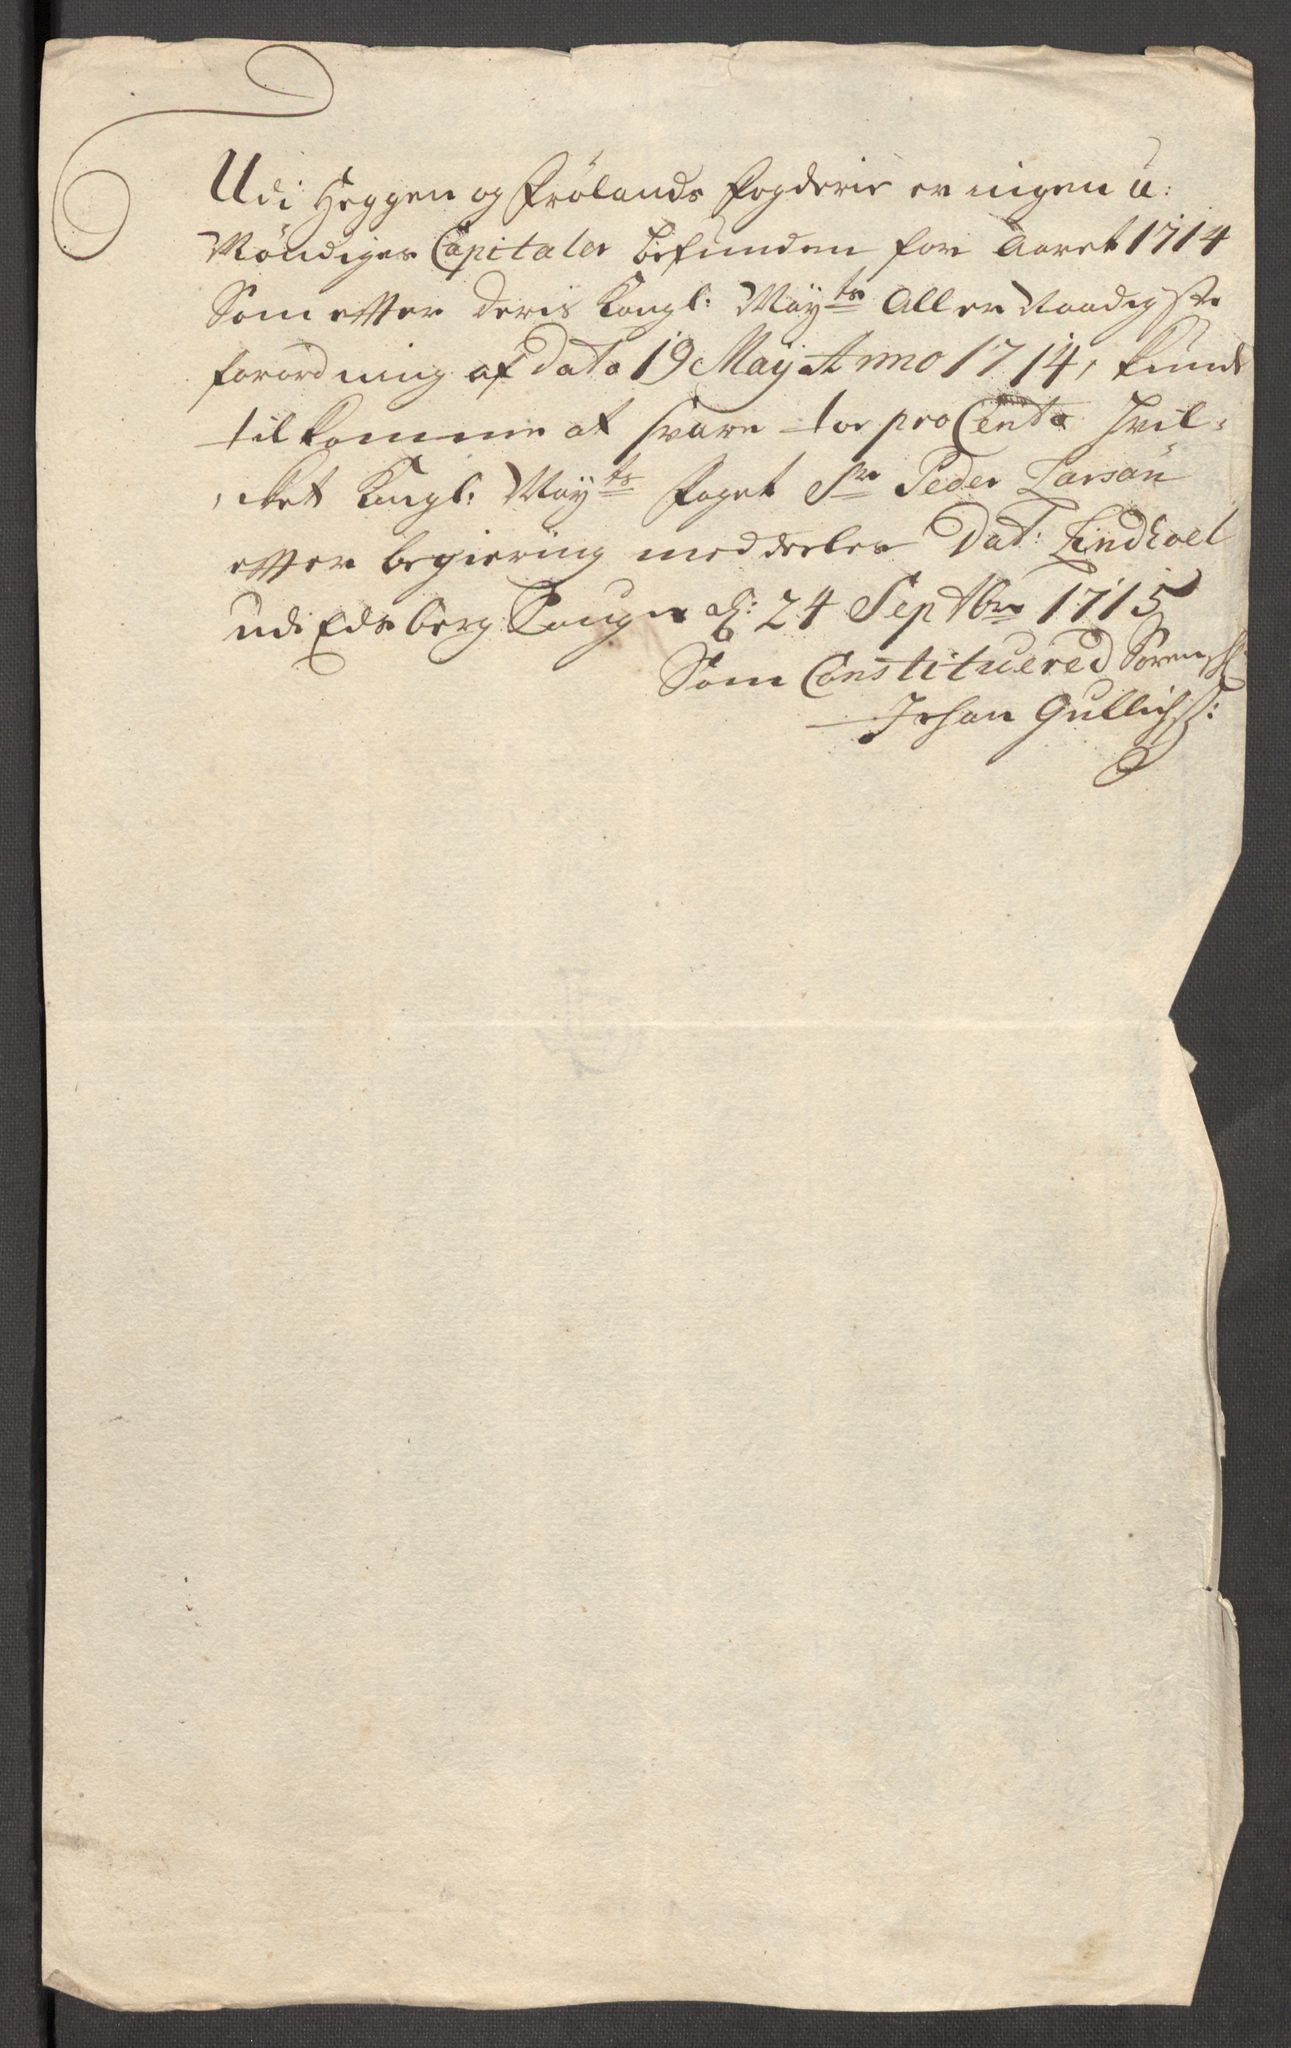 Udi Heggen og Frölands fogderie er ingen u:
Möndiges Capitaler befunden for Aaret 1714
Som effter deris Kongl: May^ts Aller Naadigste
forordning af Dato 19 May Anno 1714, kunde
tilkomme at svare toe pro Cento hvil-
cket Kongl: May^ts foget S^r Peder Larsøn
effter begiering meddeeles Dat: Lindhoel
udi Edsberg d: 24 Septbr 1715
Som Constituered Sorenskr:
Johan Gullichs: